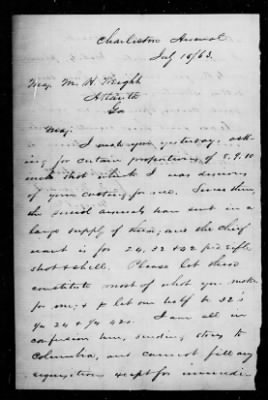 Charleston Arsenal
July 16/63.
Maj. M. H. Wright
Atlanta
Ga
Maj.
I wrote you yesterday, ask-
ing for certain proportions of 8, 9, 10
inch shot which I was desirous
of your casting for me. Since then,
the several arsenals have sent in a
large supply of them; and the chief
want is for 24, 32 & 42 pdr rifle
shot & shell. Please let these
constitute most of what you make
for me; & let one half be 32's
¼ 24 & ¼ 42s. I am all in
confusion here, sending stores to
Columbia, and cannot fill any
requisitions except for immedi-